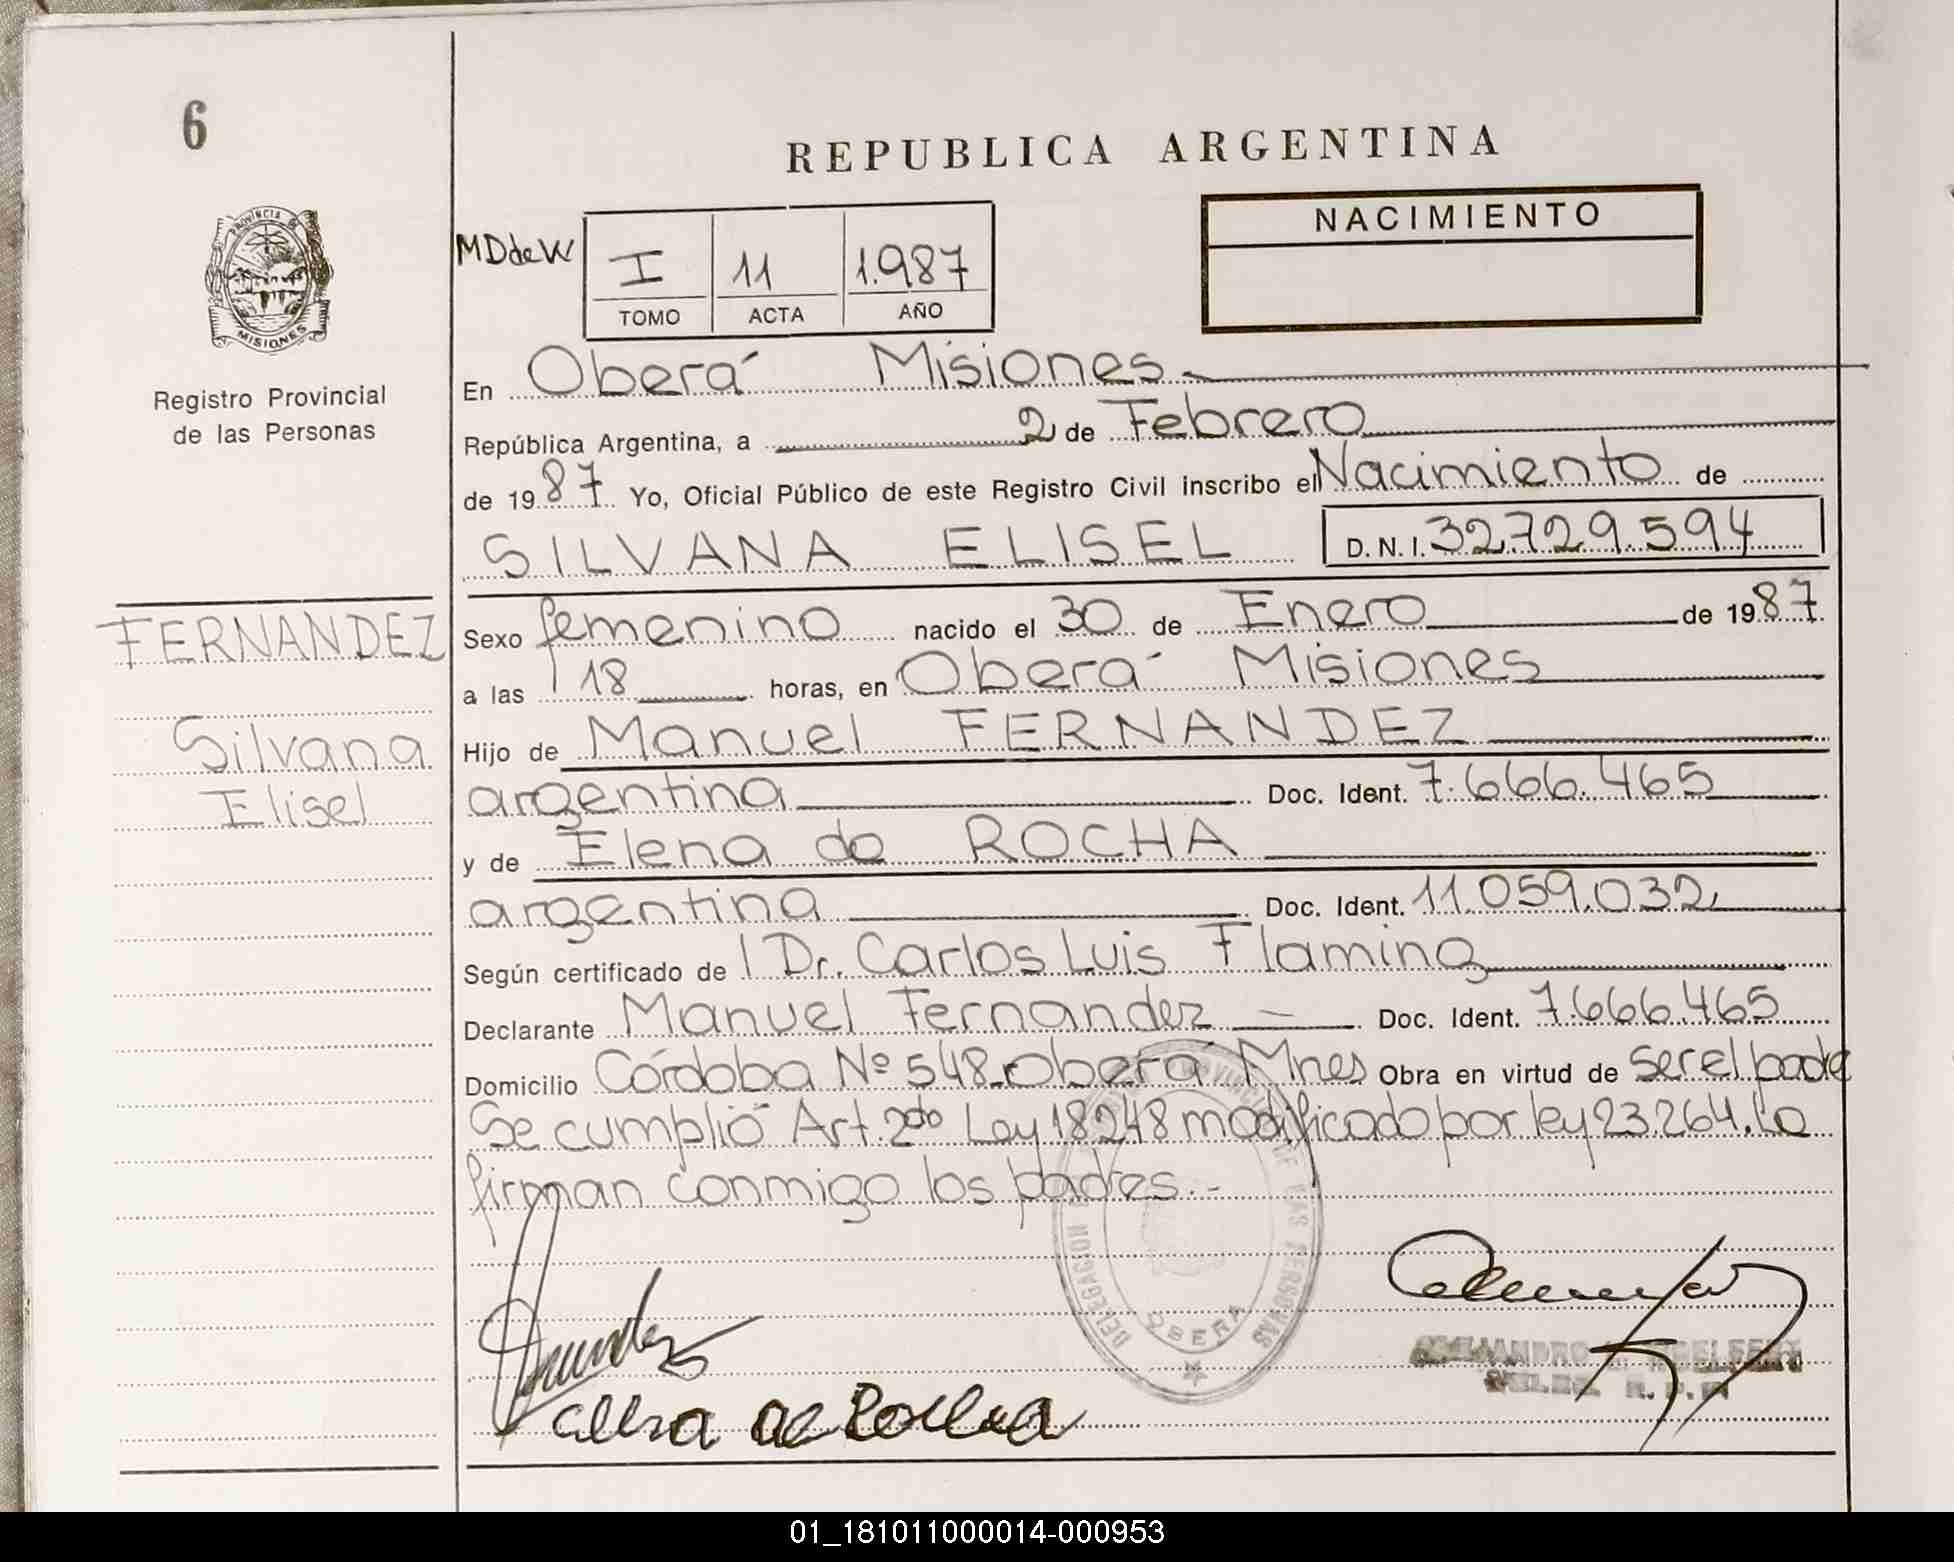 6
REPUBLICA ARGENTINA
PROVINCIA DE
MISIONES
Registro Provincial
de las Personas
MDdeW
I 11 1.987
TOMO ACTA AÑO
NACIMIENTO
En Oberá Misiones
República Argentina, a 2 de Febrero
de 1987 Yo, Oficial Público de este Registro Civil inscribo el Nacimiento de
SILVANA ELISEL D.N.I. 32.729.594
FERNANDEZ
Silvana
Elisel
Sexo femenino nacido el 30 de Enero de 1987
a las 18 horas, en Oberá Misiones
Hijo de Manuel FERNANDEZ
argentina Doc. Ident. 7.666.465
y de Elena da ROCHA
argentina Doc. Ident. 11.059.032
Según certificado de Dr. Carlos Luis Flaming
Declarante Manuel Fernandez Doc. Ident. 7.666.465
Domicilio Córdoba Nº 548-Oberá Mnes Obra en virtud de ser el padre
Se cumplió Art. 2do Ley 18248 modificado por ley 23.264. La
firman conmigo los padres.-
DE LAS PERSONAS
DELEGACION
OBERA
01_181011000014-000953